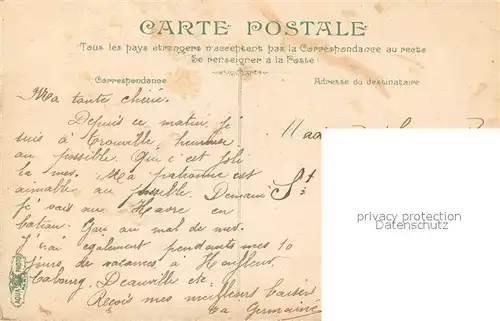 CARTE POSTALE
Tous les pays étrangers n'acceptent pas la Correspondance au recto
Se renseigner à la Poste
Correspondance
Adresse du destinataire
Ma tante chérie.
Depuis ce matin, je
suis à Trouville, heureuse
au possible. Que c'est joli
la mer. Ma patronne est
aimable au possible. Demain
je vais au Havre en
bateau. Gare au mal de mer.
j'irai également pendants mes 10
jours de vacances à Honfleur
Cabourg, Deauville etc.
Reçois mes meilleurs baisers
ta Germaine
St
AQUA PHOTO
privacy protection
Datenschutz